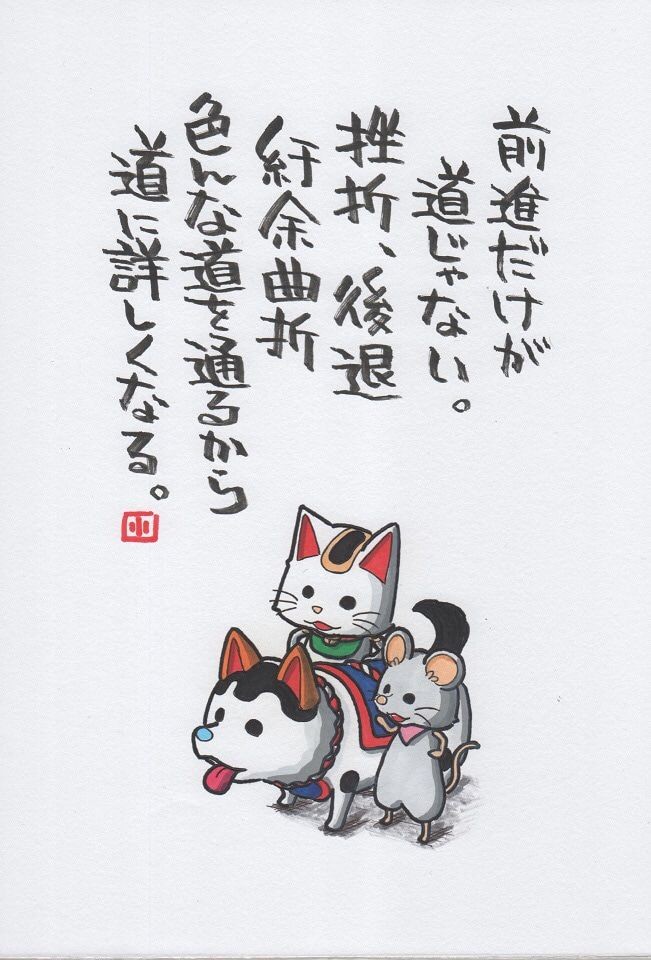 前進だけが
道じゃない。
挫折、後退
紆余曲折
色んな道を通るから
道に詳しくなる。